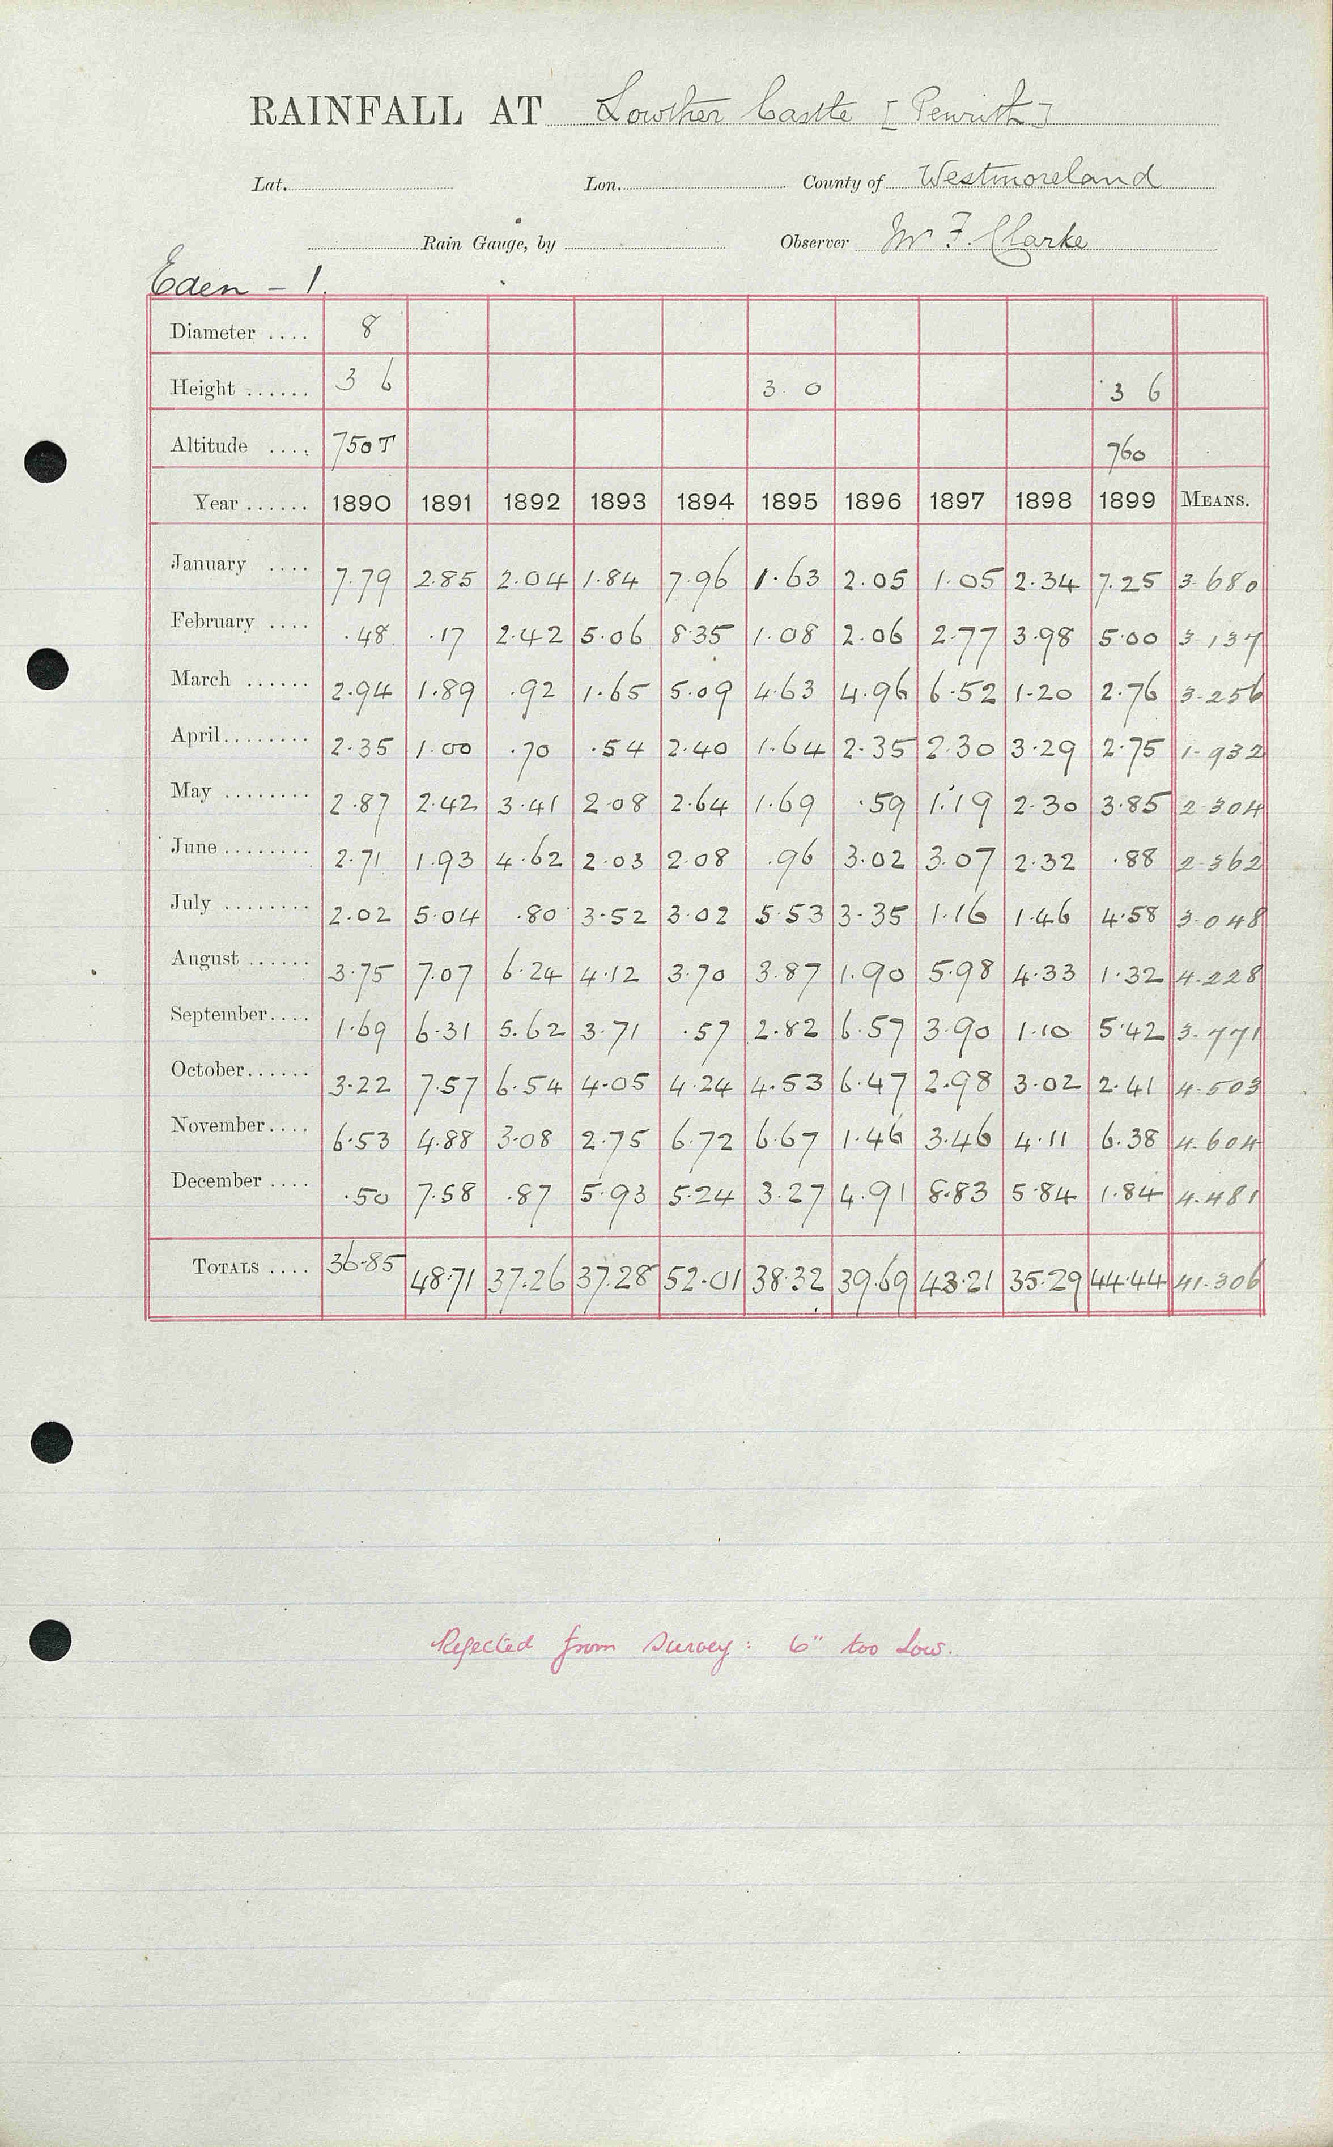 RAINFALL AT Lowther Castle [Penrith]
Lat. Lon. County of Westmoreland
Rain Gauge, by Observer Mr F. Clarke
Eden - 1.
Diameter .... 8
Height ...... 3 6 3 0 3 6
Altitude .... 750T 760
Year ...... 1890 1891 1892 1893 1894 1895 1896 1897 1898 1899 MEANS.
January .... 7.79 2.85 2.04 1.84 7.96 1.63 2.05 1.05 2.34 7.25 3.680
February .... .48 .17 2.42 5.06 8.35 1.08 2.06 2.77 3.98 5.00 3.137
March ...... 2.94 1.89 .92 1.65 5.09 4.63 4.96 6.52 1.20 2.76 3.256
April........ 2.35 1.00 .70 .54 2.40 1.64 2.35 2.30 3.29 2.75 1.932
May ........ 2.87 2.42 3.41 2.08 2.64 1.69 .59 1.19 2.30 3.85 2.304
June ........ 2.71 1.93 4.62 2.03 2.08 .96 3.02 3.07 2.32 .88 2.362
July ........ 2.02 5.04 .80 3.52 3.02 5.53 3.35 1.16 1.46 4.58 3.048
August ...... 3.75 7.07 6.24 4.12 3.70 3.87 1.90 5.98 4.33 1.32 4.228
September.... 1.69 6.31 5.62 3.71 .57 2.82 6.57 3.90 1.10 5.42 3.771
October...... 3.22 7.57 6.54 4.05 4.24 4.53 6.47 2.98 3.02 2.41 4.503
November.... 6.53 4.88 3.08 2.75 6.72 6.67 1.46 3.46 4.11 6.38 4.604
December .... .50 7.58 .87 5.93 5.24 3.27 4.91 8.83 5.84 1.84 4.481
TOTALS .... 36.85 48.71 37.26 37.28 52.01 38.32 39.69 43.21 35.29 44.44 41.306
Rejected from survey: 6" too low.